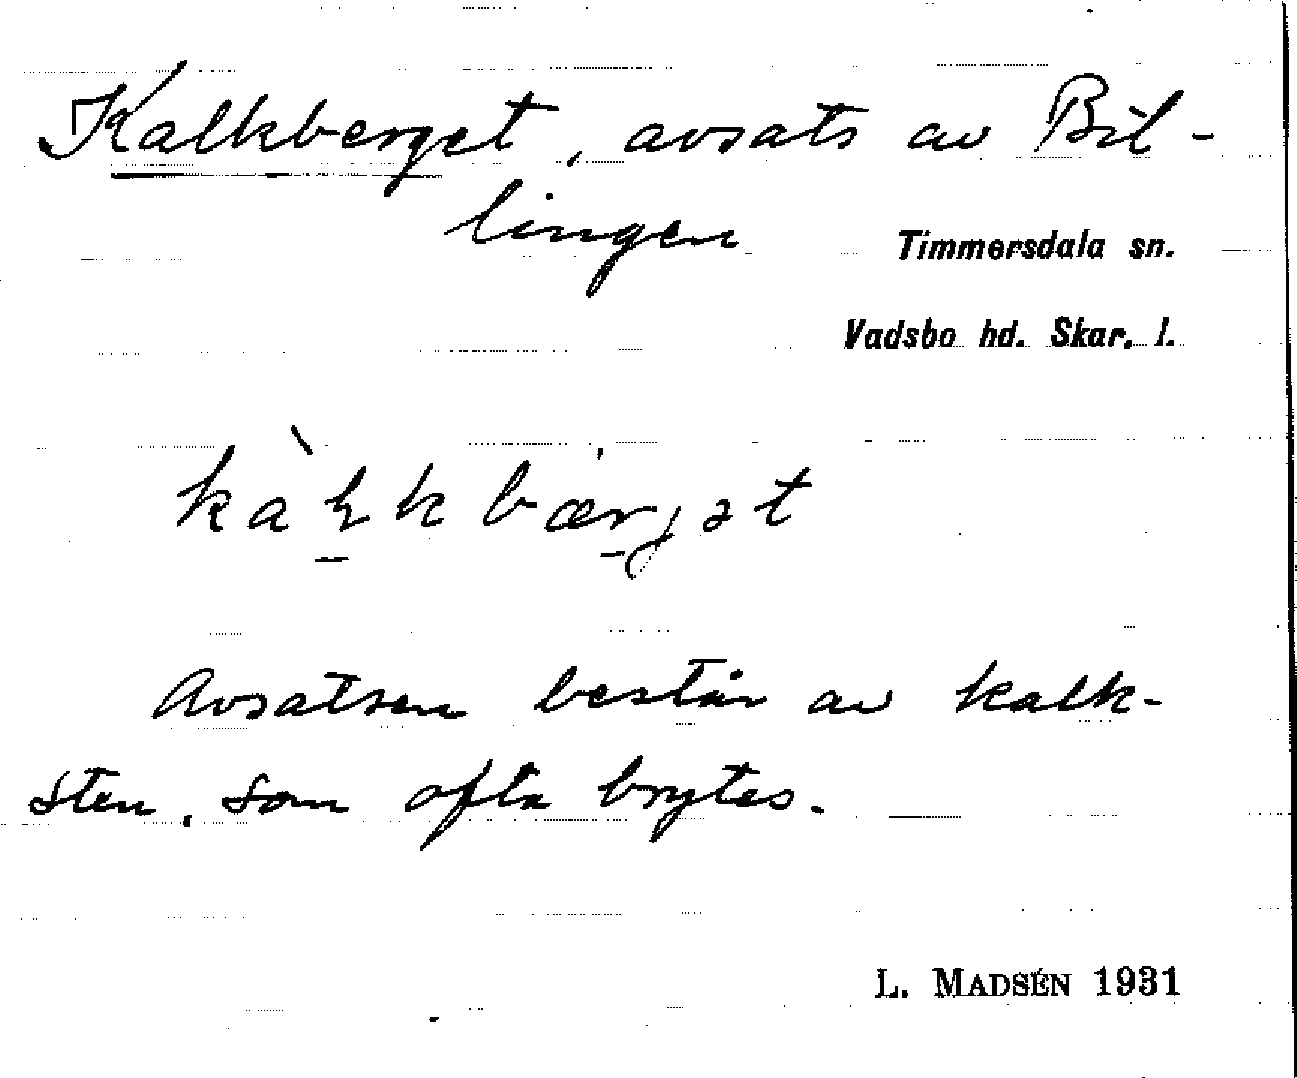 Kalkberget, avsats av Bil-
lingen
Timmersdala sn.
Vadsbo hd. Skar. l.
Avsatsen består av kalk-
sten, som ofta brytes.
L. MADSÉN 1931